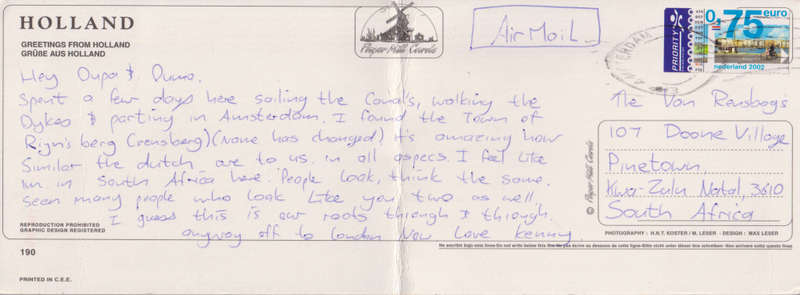 HOLLAND
GREETINGS FROM HOLLAND
GRÜßE AUS HOLLAND
Paper Mill Cards
Air Mail
PRIORITY
0,75 euro
nederland 2002
AMSTERDAM
Hey Oupa & Ouma.
Spent a few days here sailing the Canal's, walking the
Dykes & parting in Amsterdam. I found the Town of
Rijn's berg (rensberg) (Name has changed) it's amazing how
Similar the dutch are to us in all aspecs. I feel like
Im in South Africa here. People look, think the same.
Seen many people who look like you two as well
I guess this is our roots through & through.
anyway off to London Now Love Kenny
The Van Rensburg's
107 Doone Village
Pinetown
Kwa-Zulu Natal, 3610
South Africa
© Paper Mill Cards
REPRODUCTION PROHIBITED
GRAPHIC DESIGN REGISTERED
PHOTOGRAPHY : H.N.T. KOSTER / M. LESER - DESIGN : MAX LESER
190
PRINTED IN C.E.E.